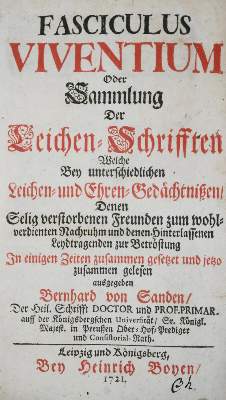 FASCICULUS
VIVENTIUM
Oder
Sammlung
Der
Leichen-Schrifften
Welche
Bey unterschiedlichen
Leichen- und Ehren-Gedächtnißen/
Denen
Selig verstorbenen Freunden zum wohl-
verdienten Nachruhm und denen Hinterlassenen
Leydtragenden zur Betröstung
In einigen Zeiten zusammen gesetzet und jetzo
zusammen gelesen
ausgegeben
Bernhard von Sanden/
Der Heil. Schrifft DOCTOR und PROF. PRIMAR.
auff der Königsbergschen Universität/ Sr. Königl.
Majest. in Preußen Ober-Hof-Prediger
und Consistorial-Rath.
Leipzig und Königsberg,
Bey Heinrich Boyen/
1721.